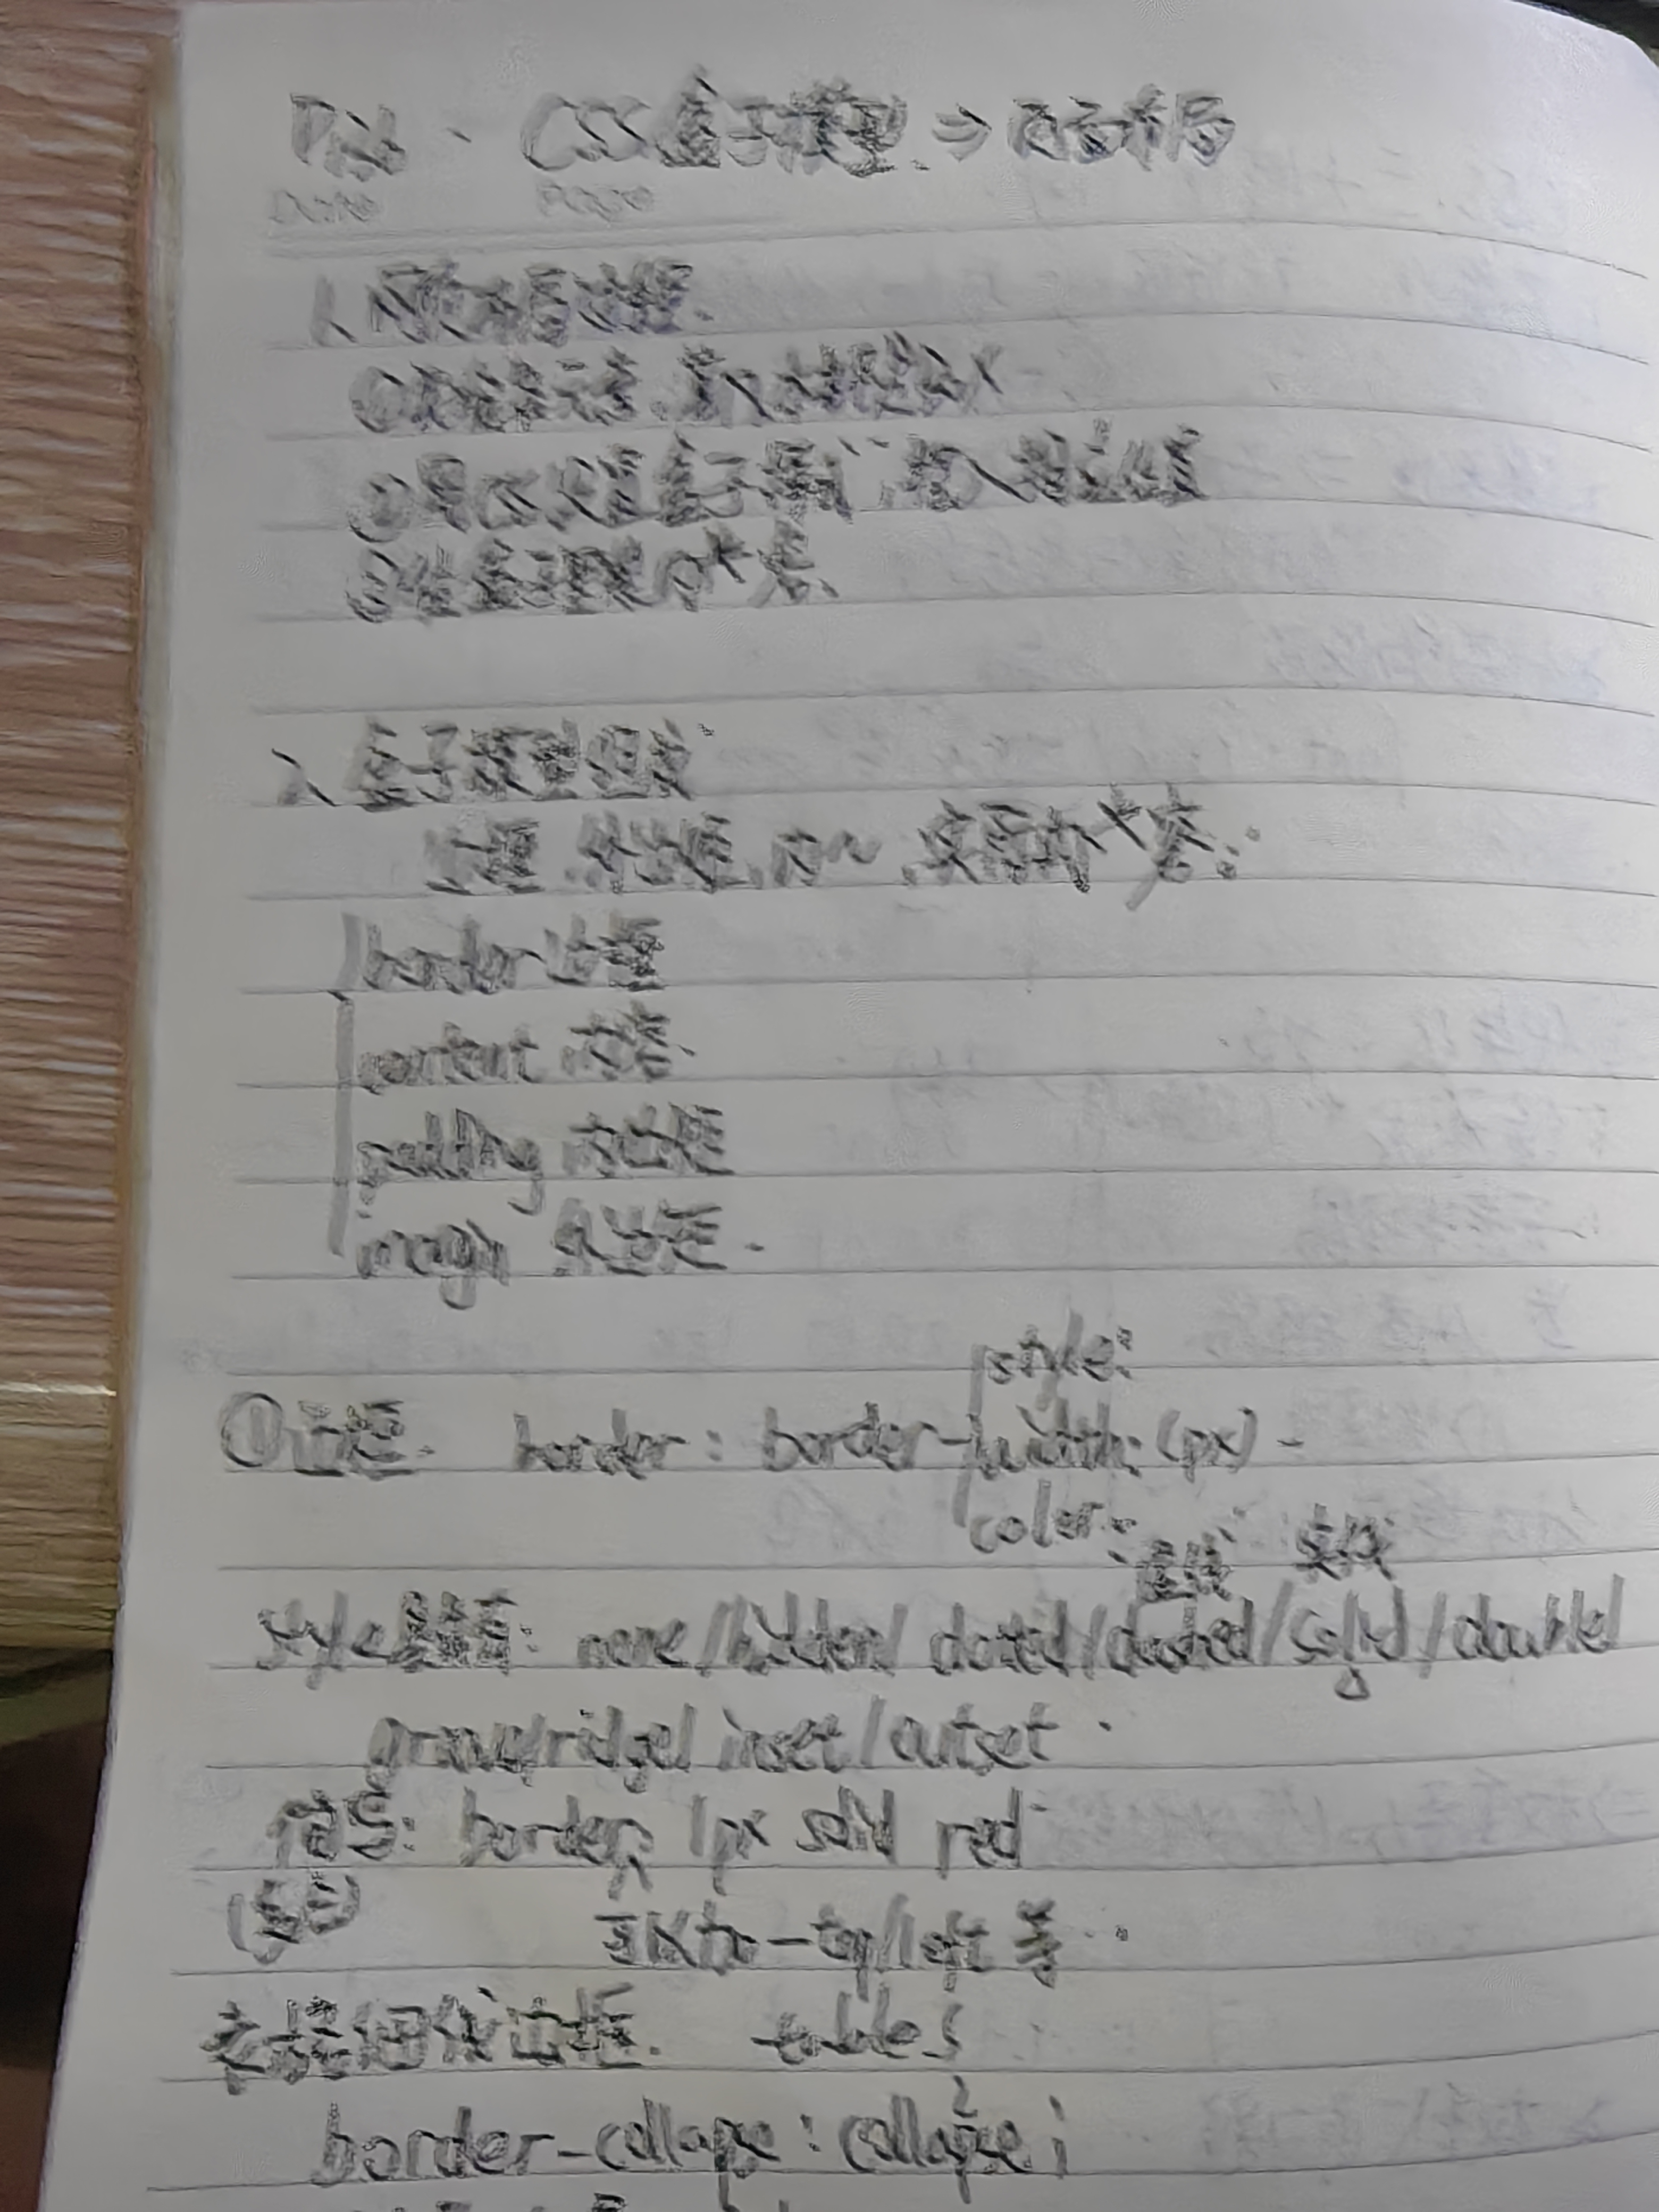 CSS盒子模型 ⇒ 页面布局
Date Page
1、网页布局过程.
①准备
②用CSS设置盒子 位置
③ 盒子 内容
2、盒子模型组成
边框、外边距、内~、实际内容:
border 边框
content 内容
padding 内边距
margin 外边距.
style:
①边框. border: border- width: (px)
color:
虚线 实线
style : none/hidden/ dotted/dashed/solid/double/
groove/ridge/ inset/outset
border: 1px solid red
可以加-top/left等
表格细线边框. tables
border-collapse: collapse;